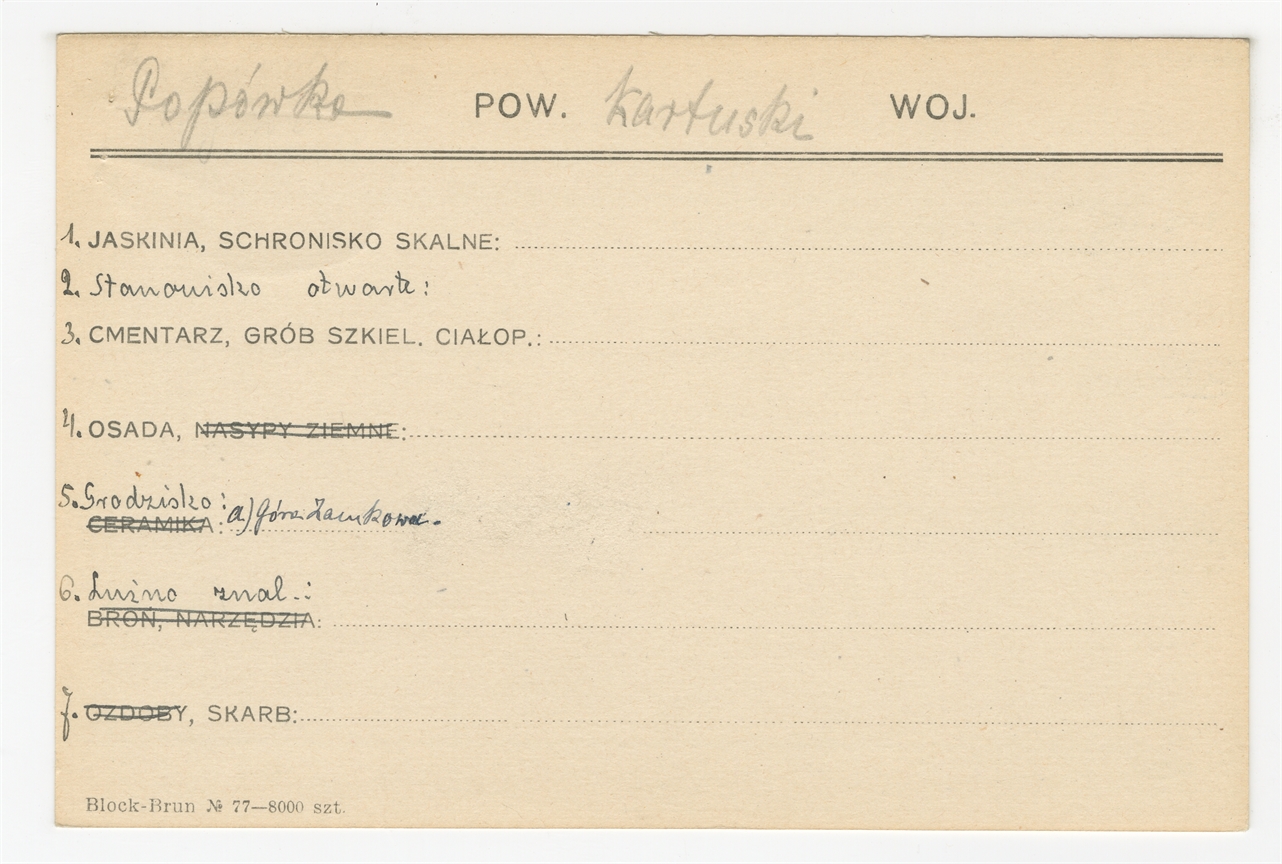 Popówko POW. Kartuski WOJ.
1. JASKINIA, SCHRONISKO SKALNE:
2. Stanowisko otwarte:
3. CMENTARZ, GRÓB SZKIEL. CIAŁOP.:
4. OSADA, NASYPY ZIEMNE:
5. Grodzisko:
CERAMIKA: a) Góra Zamkowa.
6. Luźno znal.:
BROŃ, NARZĘDZIA:
7. OZDOBY, SKARB:
Block-Brun № 77—8000 szt.